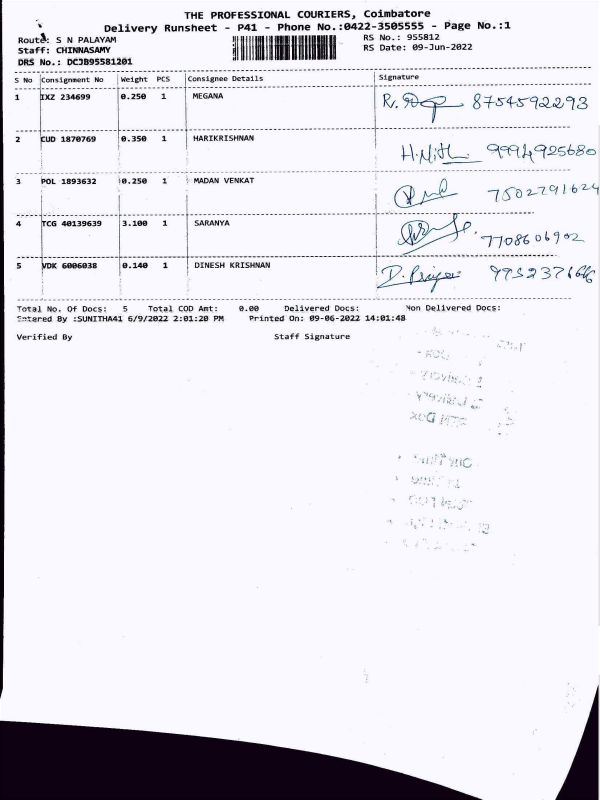 THE PROFESSIONAL COURIERS, Coimbatore
Delivery Runsheet - P41 - Phone No.:0422-3505555 - Page No.:1
Route: S N PALAYAM RS No.: 955812
Staff: CHINNASAMY RS Date: 09-Jun-2022
DRS No.: DCJB95581201
S No Consignment No Weight PCS Consignee Details Signature
1 IXZ 234699 0.250 1 MEGANA 8754592293
2 CUD 1870769 0.350 1 HARIKRISHNAN H.Nith 9994925680
3 POL 1893632 0.250 1 MADAN VENKAT 7502791624
4 TCG 40139639 3.100 1 SARANYA 7708606902
5 VDK 6006038 0.140 1 DINESH KRISHNAN D. Priya
Total No. Of Docs: 5 Total COD Amt: 0.00 Delivered Docs: Non Delivered Docs:
Entered By :SUNITHA41 6/9/2022 2:01:20 PM Printed On: 09-06-2022 14:01:48
Verified By Staff Signature